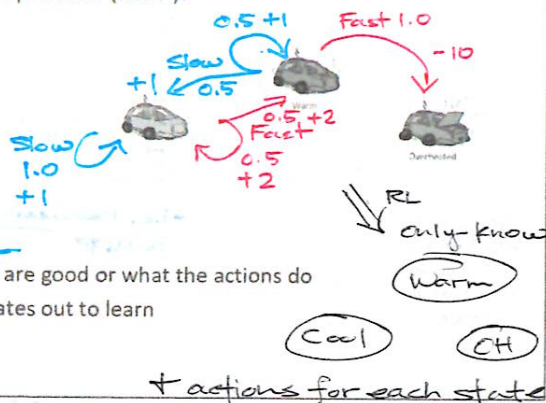 0.5 +1
Fast 1.0
-10
Slow
0.5
+1
Warm
0.5 +2
Fast
0.5
+2
Overheated
Slow
1.0
+1
RL
only-know
are good or what the actions do
Warm
ates out to learn
Cool
OH
+ actions for each state